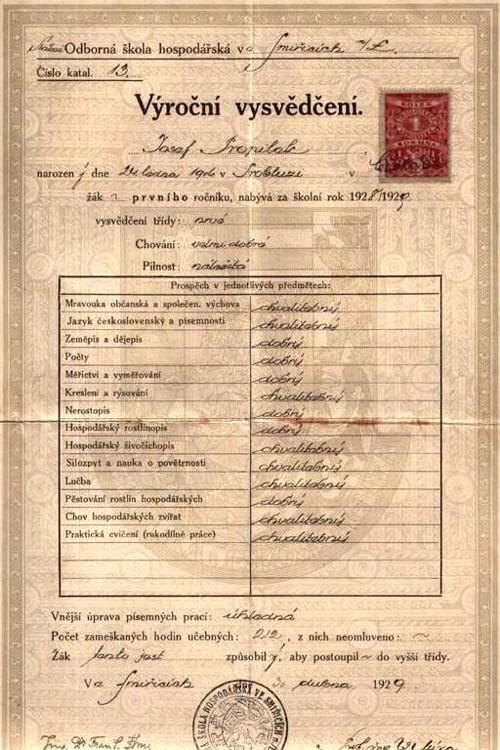 Odborná škola hospodářská v Smiřicích n/L.
Číslo katal. 13.
KOLEK
1
KORUNA
Výroční vysvědčení.
Josef
narozený dne ledna v Probluzi v
žák prvního ročníku, nabývá za školní rok 1928/1929
vysvědčení třídy: prvé
Chování: velmi dobré
Pilnost: náležitá
Prospěch v jednotlivých předmětech:
Mravouka občanská a společen. výchova chvalitebný
Jazyk československý a písemnosti chvalitebný
Zeměpis a dějepis dobrý
Počty dobrý
Měřictví a vyměřování dobrý
Kreslení a rýsování chvalitebný
Nerostopis dobrý
Hospodářský rostlinopis dobrý
Hospodářský živočichopis chvalitebný
Silozpyt a nauka o povětrnosti chvalitebný
Lučba chvalitebný
Pěstování rostlin hospodářských dobrý
Chov hospodářských zvířat chvalitebný
Praktická cvičení (rukodílné práce) chvalitebný
Vnější úprava písemných prací: úhledná
Počet zameškaných hodin učebných: 212, z nich neomluveno: ~
Žák tento jest způsobilý, aby postoupil ~ do vyšší třídy.
Ve Smiřicích 30. dubna 1929
ŠKOLA HOSPODÁŘSKÁ VE SMIŘICÍCH